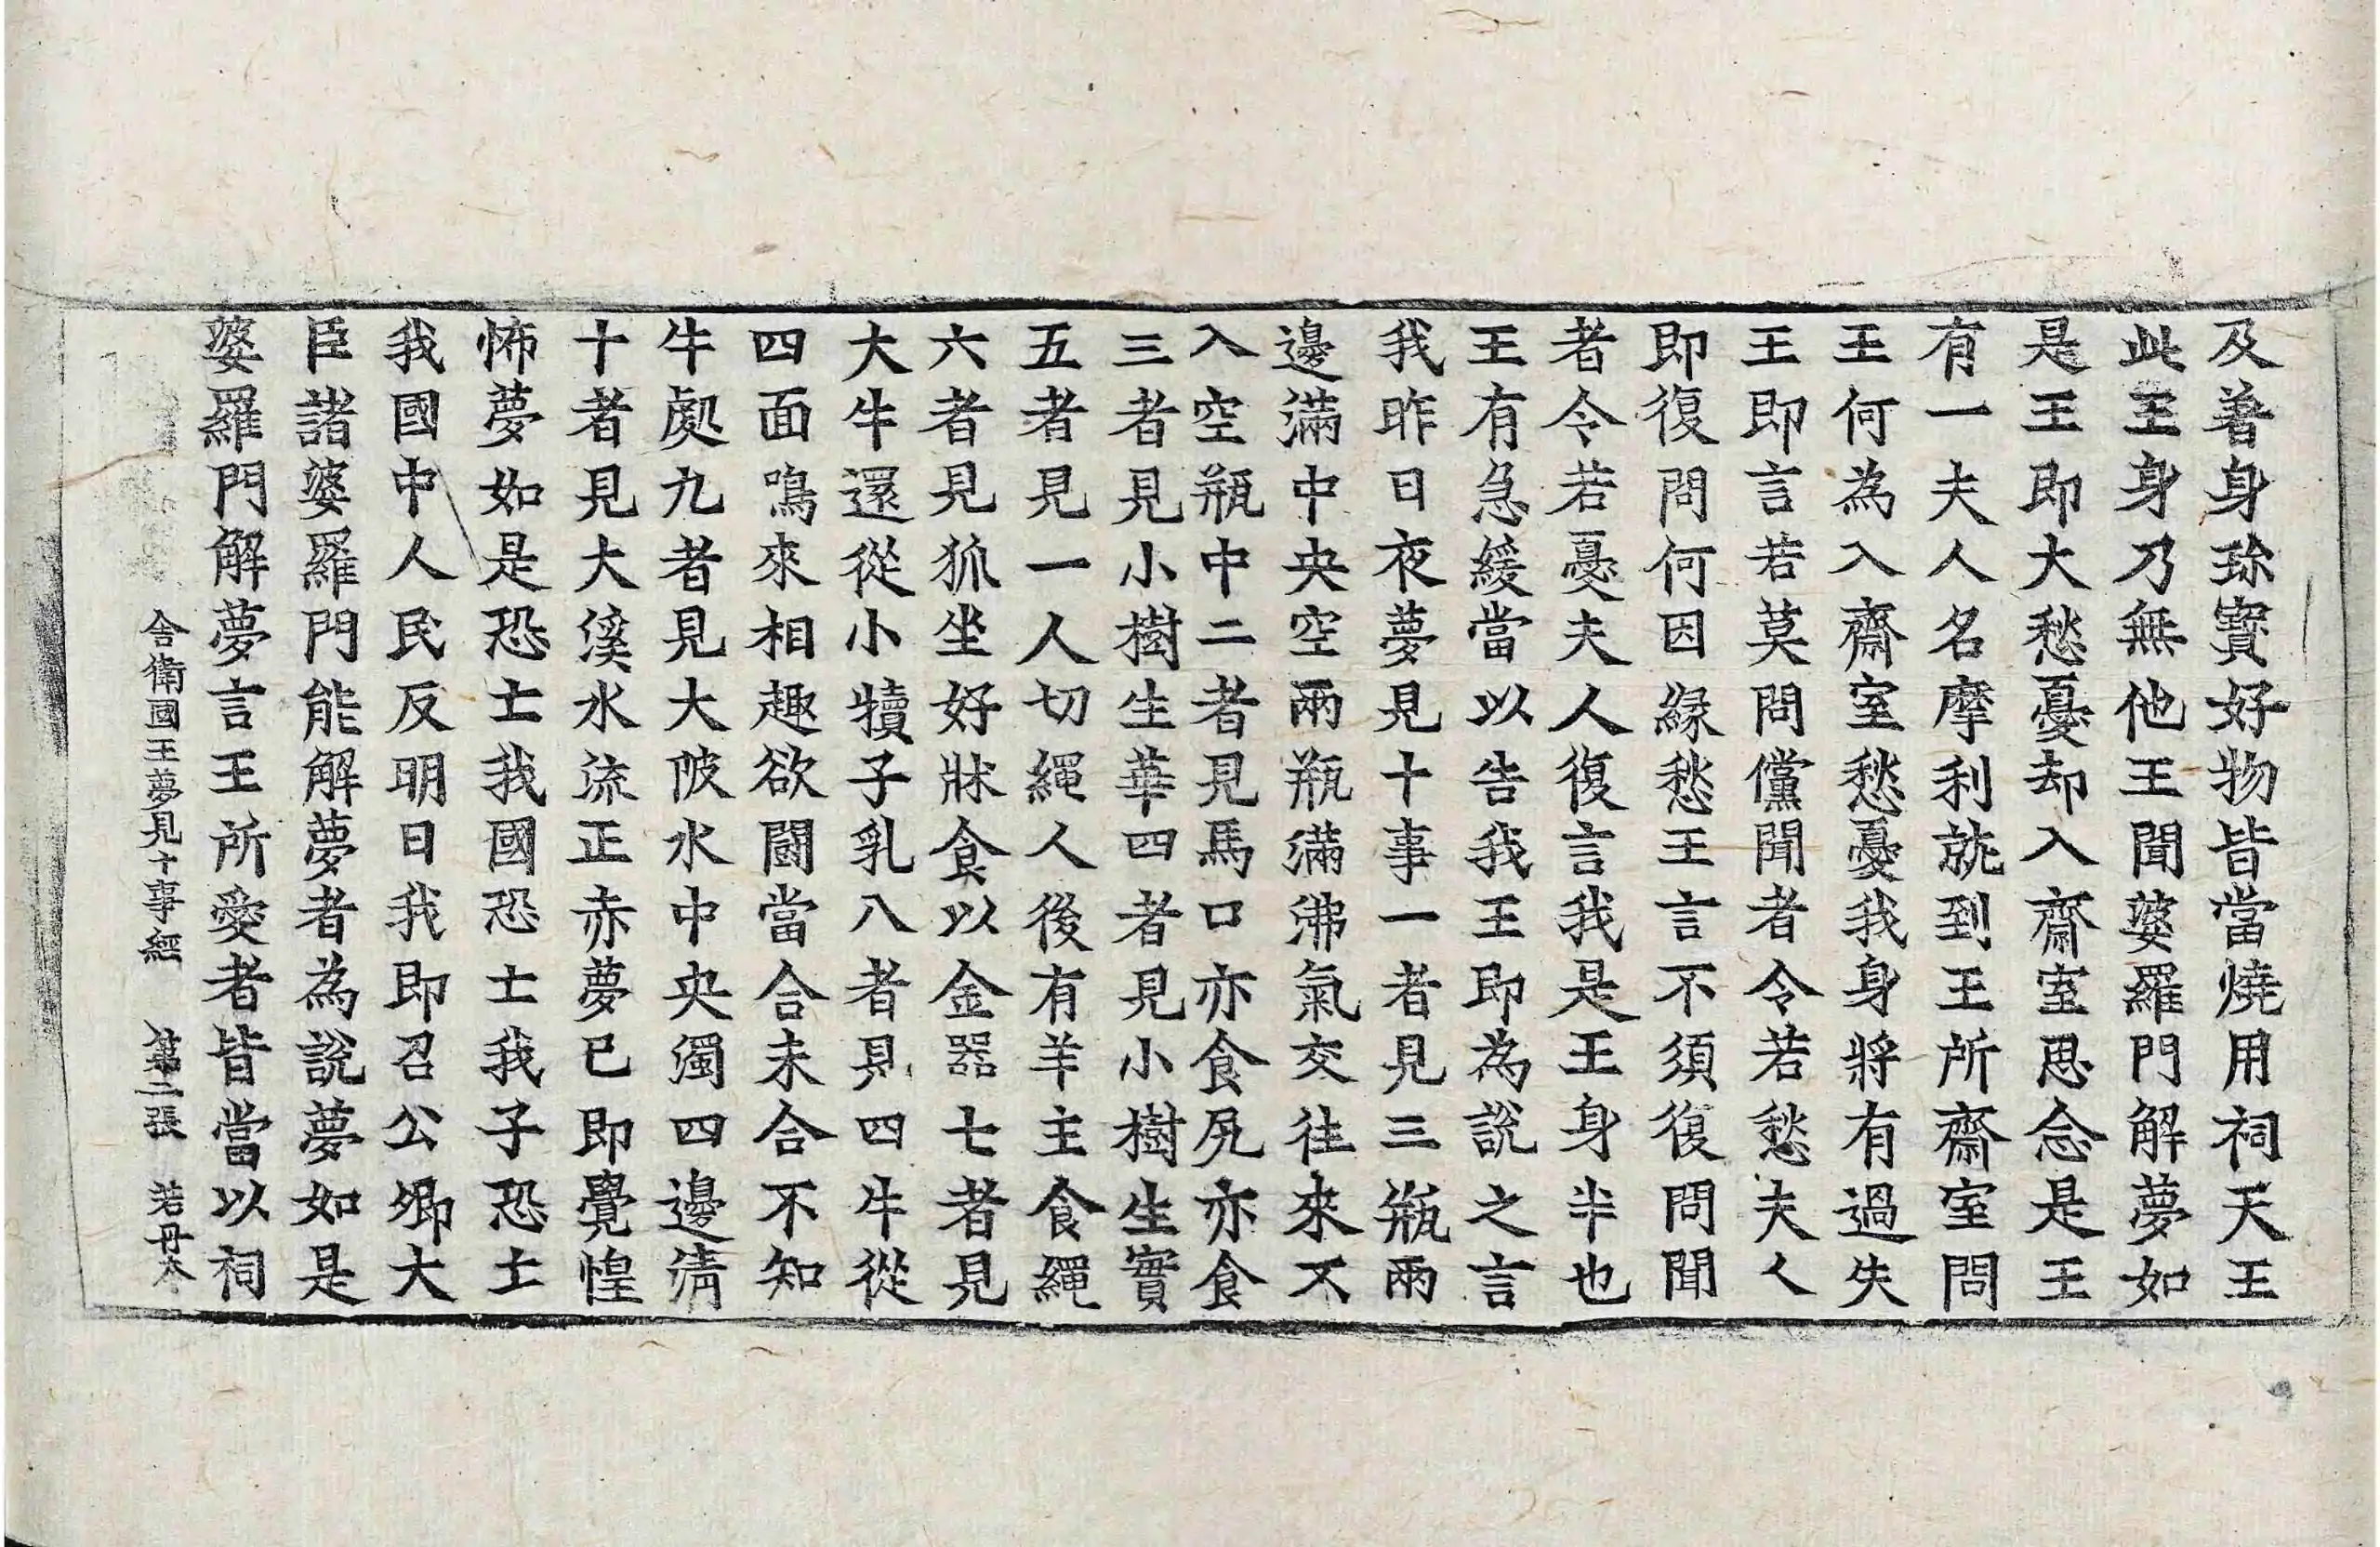 及著身珎寶好物皆當燒用祠天王
此王身乃無他王聞婆羅門解夢如
是王即大愁憂却入齋室思念是王
有一夫人名摩利就到王所齋室問
王何為入齋室愁憂我身將有過失
王即言若莫問儻聞者令若愁夫人
即復問何因緣愁王言不須復問聞
者令若憂夫人復言我是王身半也
王有急緩當以告我王即為說之言
我昨日夜夢見十事一者見三瓶兩
邊滿中央空兩瓶滿沸氣交往來不
入空瓶中二者見馬口亦食尻亦食
三者見小樹生華四者見小樹生實
五者見一人切繩人後有羊主食繩
六者見狐坐好牀食以金器七者見
大牛還從小犢子乳八者見四牛從
四面鳴來相趣欲鬪當合未合不知
牛處九者見大陂水中央濁四邊清
十者見大溪水流正赤夢已即覺惶
怖夢如是恐士我國恐士我子恐士
我國中人民反明日我即召公卿大
臣諸婆羅門能解夢者為說夢如是
婆羅門解夢言王所愛者皆當以祠
舍衛國王夢見十事經 第二張 若 丹本